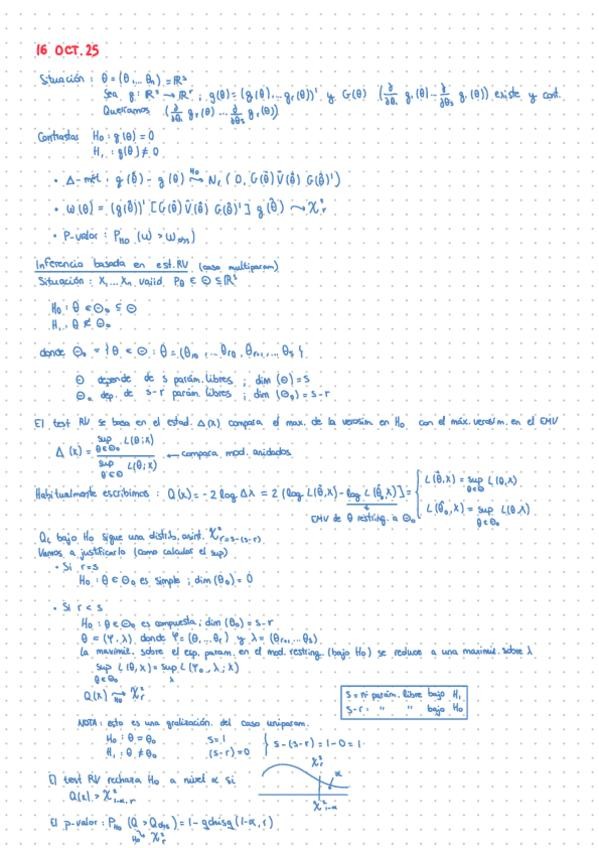 16 OCT. 25
Situación: θ = (θ₁, ... θₙ) = ℝˢ
Sea g: ℝˢ → ℝʳ ; g(θ) = (g₁(θ), ... gᵣ(θ))' y G(θ) (∂/∂θ₁ g₁(θ) ... ∂/∂θₛ g₁(θ)) existe y cont.
Queríamos (∂/∂θ₁ gᵣ(θ) ... ∂/∂θₛ gᵣ(θ))
Contrastes H₀: g(θ) = 0
H₁: g(θ) ≠ 0
• Δ-mét: g(θ̂) - g(θ) ~ᴴ⁰ Nᵣ(0, G(θ̂) V̂(θ̂) G(θ̂)')
• W(θ̂) = (g(θ̂))' [G(θ̂) V̂(θ̂) G(θ̂)'] g(θ̂) ~ χ²ᵣ
• P-valor: P_H₀ (W > W_obs)
Inferencia basada en est. RV (caso multiparam)
Situación: X₁ ... Xₙ vaiid P_θ ∈ Θ ⊆ ℝˢ
H₀: θ ∈ Θ₀ ⊆ Θ
H₁: θ ∉ Θ₀
donde Θ₀ = {θ ∈ Θ : θ = (θ₁₀, ... θᵣ₀, θᵣ₊₁, ... θₛ}
Θ depende de s parám. libres ; dim(Θ) = s
Θ₀ dep. de s-r parám libres ; dim(Θ₀) = s-r
El test RV se basa en el estad. Λ(X) compara el max. de la verosim en H₀ con el máx. verosim. en el EMV
Λ(x) = sup_{θ∈Θ₀} L(θ;X) / sup_{θ∈Θ} L(θ;X) ← compara mod. anidados
Habitualmente escribimos: Q(X) = -2 log Λ = 2 (log L(θ̂,X) - log L(θ̂₀,X)] = { L(θ̂,X) = sup_{θ∈Θ} L(θ,X)
EMV de θ restring. a Θ₀ L(θ̂₀,X) = sup_{θ∈Θ₀} L(θ,X)
QL bajo H₀ sigue una distrib. asint. χ²_{r=s-(s-r)}
Vamos a justificarlo (como calcular el sup)
• Si r=s
H₀: θ ∈ Θ₀ es simple ; dim(Θ₀) = 0
• Si r < s
H₀: θ ∈ Θ₀ es compuesta ; dim(Θ₀) = s-r
θ = (Ψ, λ) donde Ψ = (θ₁ ... θᵣ) y λ = (θᵣ₊₁, ... θₛ)
la maximiz. sobre el esp. param. en el mod. restring. (bajo H₀) se reduce a una maximiz. sobre λ
sup_{θ∈Θ₀} L(θ,X) = sup_λ L(Ψ₀, λ; X)
Q(X) ~ᴴ⁰ χ²ᵣ
s = nº parám. libre bajo H₁
s-r = " " bajo H₀
NOTA: esto es una gralización del caso uniparam.
H₀: θ = θ₀ s=1 } s-(s-r) = 1-0 = 1
H₁: θ ≠ θ₀ (s-r) = 0
χ²ᵣ
El test RV rechaza H₀ a nivel α si α
Q(x) > χ²_{1-α, r} χ²_{1-α}
El p-valor: P_H₀ (Q > Q_obs) = 1 - qchisq(1-α, r)
H₀ χ²ᵣ